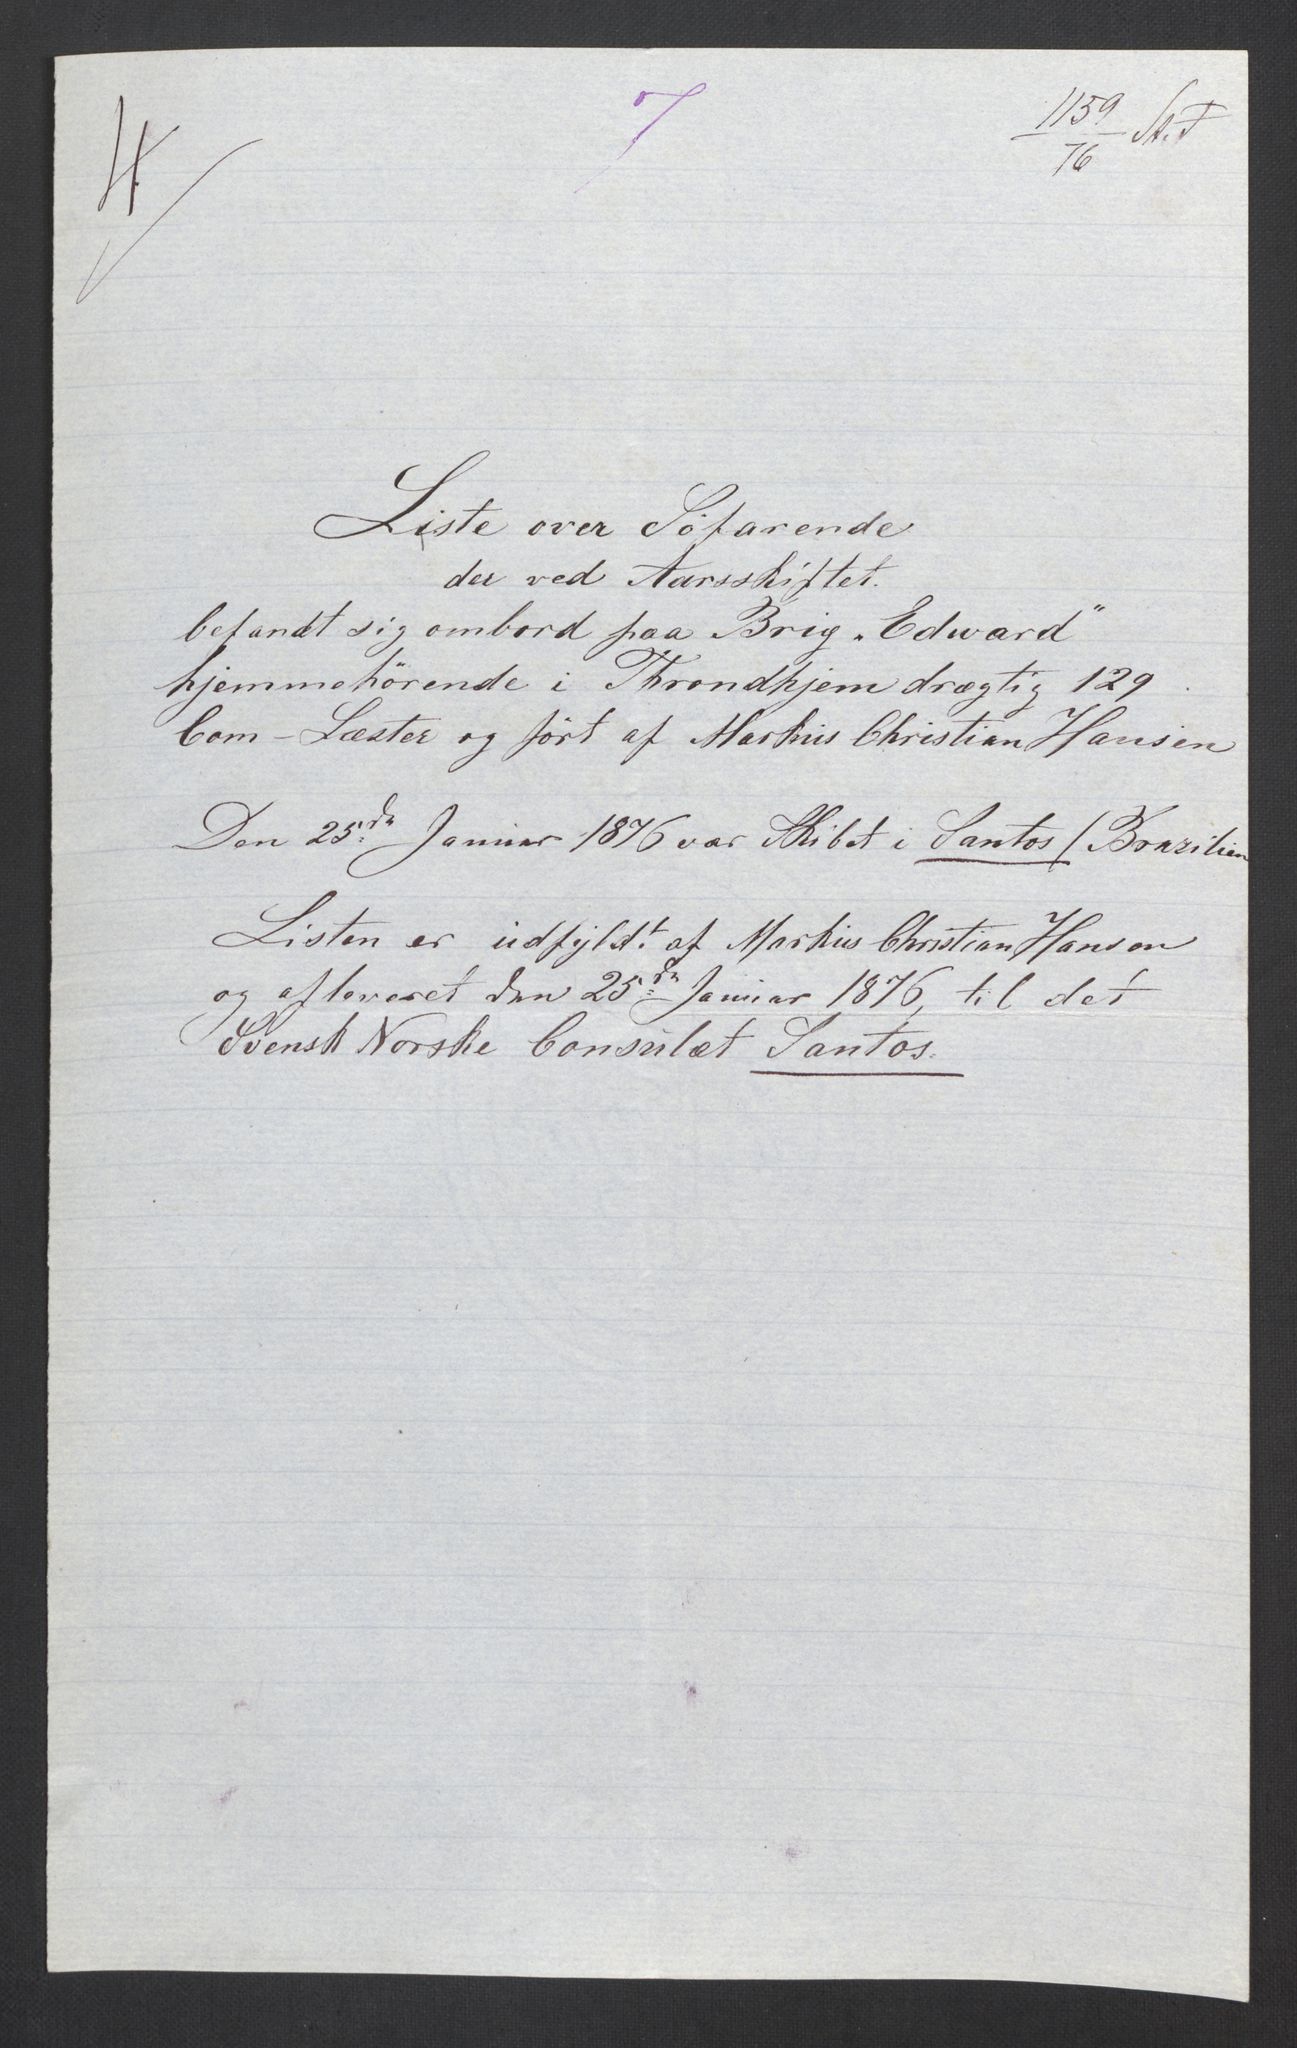 4.
7
1159/76 St. T
Liste over Söfarende
der ved Aarsskiftet.
befandt sig ombord paa Brig "Edward"
hjemmehörende i Throndhjem drægtig 129
Com-Læster og fört af Markus Christian Hansen
Den 25de Januar 1876 var Skibet i Santos / Brazilien
Listen er udfyldt af Markus Christian Hansen
og afleveret den 25de Januar 1876, til det
Svensk Norske Consulat Santos.